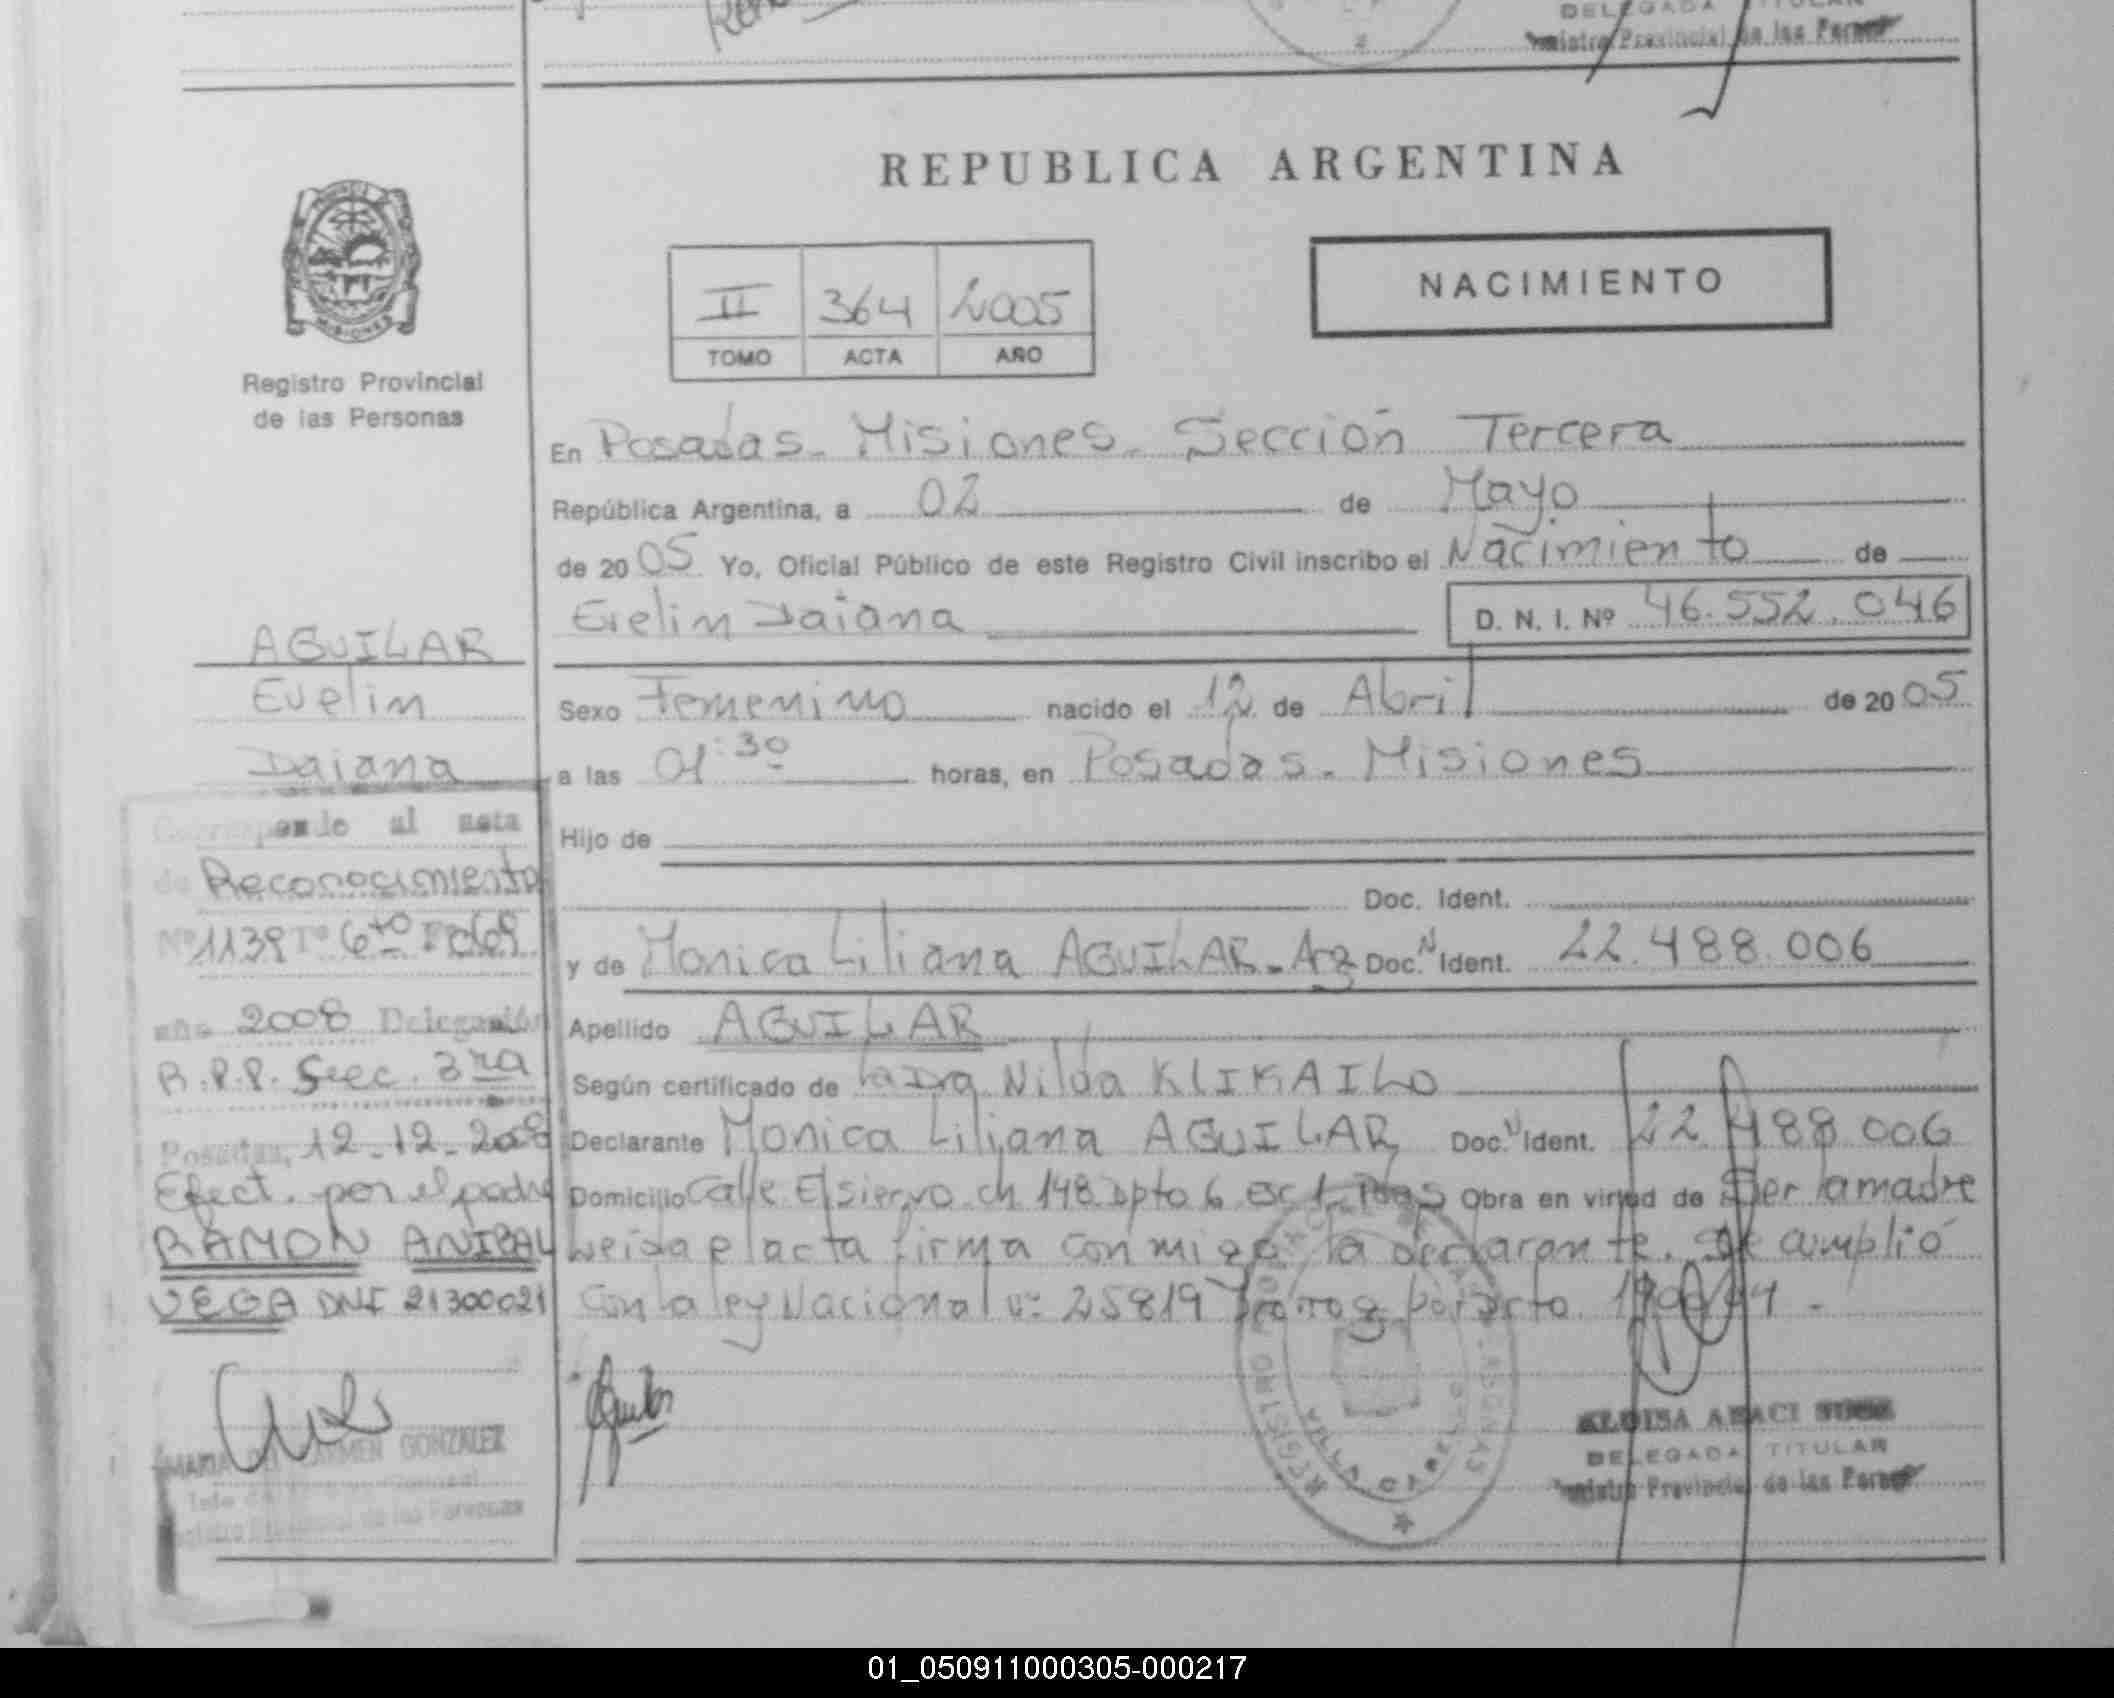 DELEGADA TITULAR
Registro Provincial de las Person
REPUBLICA ARGENTINA
NACIMIENTO
II 364 2005
TOMO ACTA AÑO
MISIONES
Registro Provincial
de las Personas
En Posadas - Misiones - Sección Tercera
República Argentina, a 02 de Mayo
de 2005 Yo, Oficial Público de este Registro Civil inscribo el Nacimiento de
Evelin Daiana D. N. I. Nº 46.552.046
Sexo Femenino nacido el 12 de Abril de 2005
a las 01:30 horas, en Posadas - Misiones
Hijo de
Doc. Ident.
y de Monica Liliana AGUILAR - Arg Doc. N Ident. 22.488.006
Apellido AGUILAR
Según certificado de la Dra Nilda KLIKAILO
Declarante Monica Liliana AGUILAR Doc. N Ident. 22 488 006
Domicilio Calle El siervo ch 148 dpto 6 esc 1 Pdas Obra en virtud de Ser la madre
Leida el acta firma conmigo la declarante. Se cumplió
con la ley Nacional nº 25819 por dcto
AGUILAR
Evelin
Daiana
Corresponde al acta
de Reconocimiento
Nº 1139 Tº 6to Fº 069
año 2008 Delegación
R.P.P. Secc. 3ra
Posadas, 12-12-2008
Efect. por el padre
RAMON ANIBAL
VEGA DNI 21300021
MARIA DEL CARMEN GONZALEZ
Registro Provincial de las Personas
VILLA CABELLO
ELOISA ABACI
DELEGADA TITULAR
Registro Provincial de las Person
01_050911000305-000217